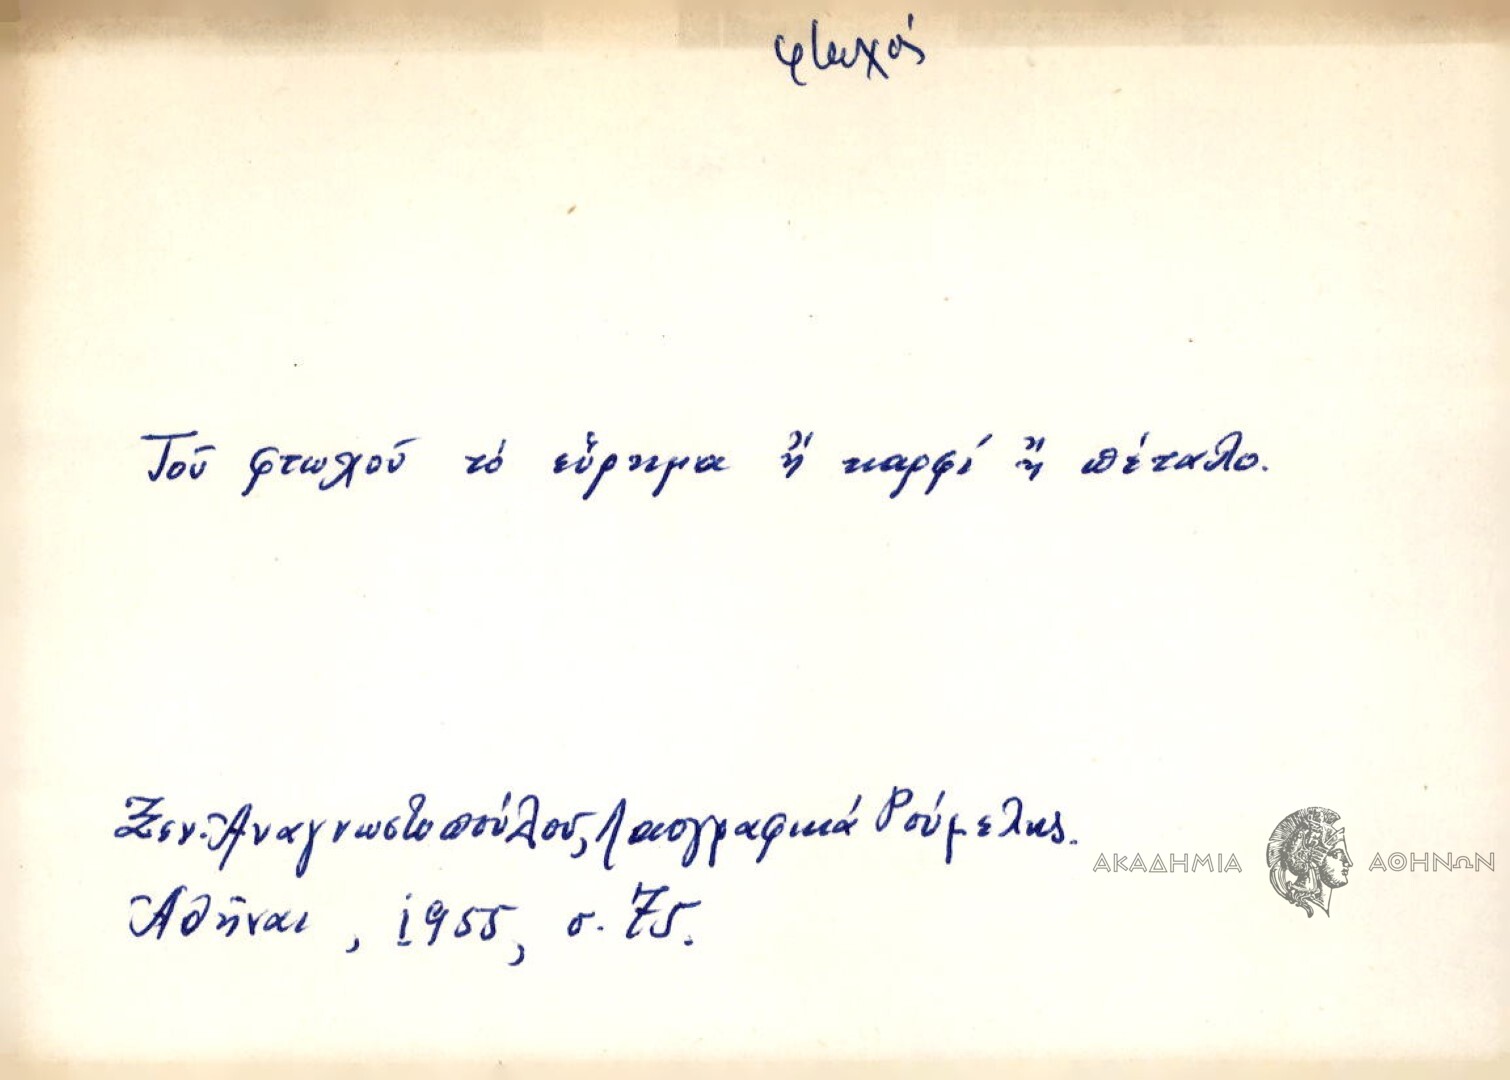 φτωχός
Τοῦ φτωχοῦ τό εὕρημα ἤ καρφί ἤ πέταλο.
Ξεν. Ἀναγνωστοπούλου, Λαογραφικά Ρούμελης.
ΑΚΑΔΗΜΙΑ ΑΘΗΝΩΝ
Ἀθῆναι, 1955, σ. 75.